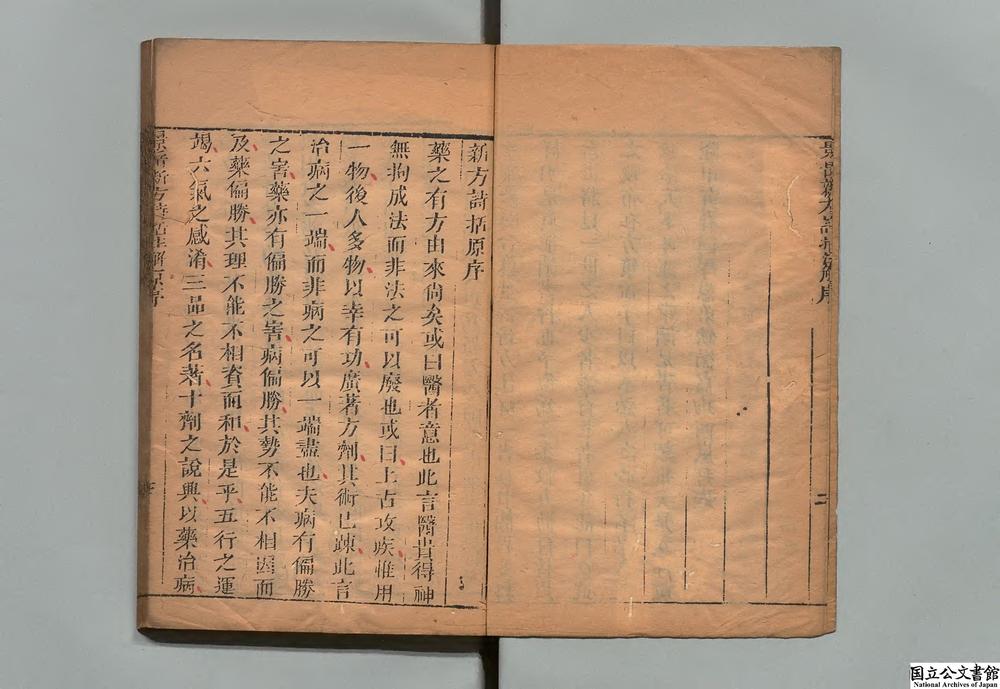 景岳新方詩括註解序
二
新方詩括原序
藥之有方由來尙矣或曰醫者意也此言醫貴得神
無拘成法而非法之可以廢也或曰上古攻疾惟用
一物後人多物以幸有功廣著方劑其術已疎此言
治病之一端而非病之可以一端盡也夫病有偏勝
之害藥亦有偏勝之害病偏勝其勢不能不相因而
及藥偏勝其理不能不相資而和於是乎五行之運
竭六氣之感淆三品之名著十劑之說興以藥治病
景岳新方詩括註解原序
国立公文書館
National Archives of Japan